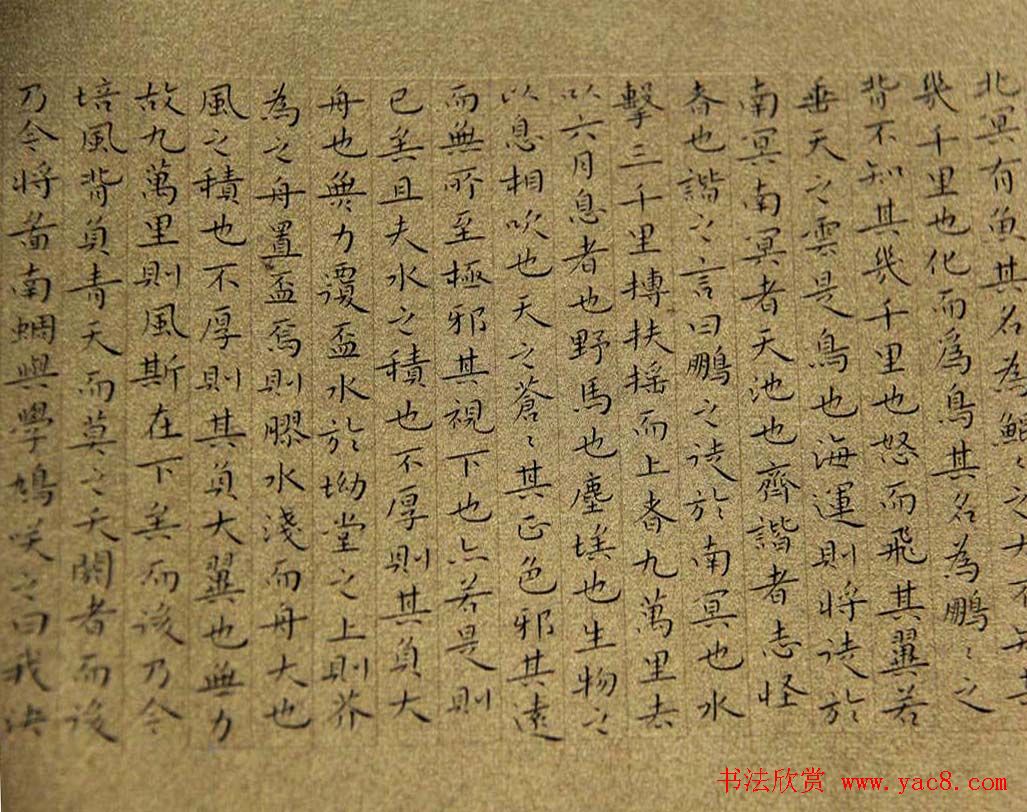 北冥有魚其名為鯤〻之大不知其
幾千里也化而為鳥其名為鵬〻之
背不知其幾千里也怒而飛其翼若
垂天之雲是鳥也海運則將徙於
南冥南冥者天池也齊諧者志怪
者也諧之言曰鵬之徙於南冥也水
擊三千里摶扶搖而上者九萬里去
以六月息者也野馬也塵埃也生物之
以息相吹也天之蒼〻其正色邪其遠
而無所至極邪其視下也亦若是則
已矣且夫水之積也不厚則其負大
舟也無力覆盃水於坳堂之上則芥
為之舟置盃焉則膠水淺而舟大也
風之積也不厚則其負大翼也無力
故九萬里則風斯在下矣而後乃今
培風背負青天而莫之夭閼者而後
乃今將啚南蜩與學鳩笑之曰我決
书法欣赏 www.yac8.com